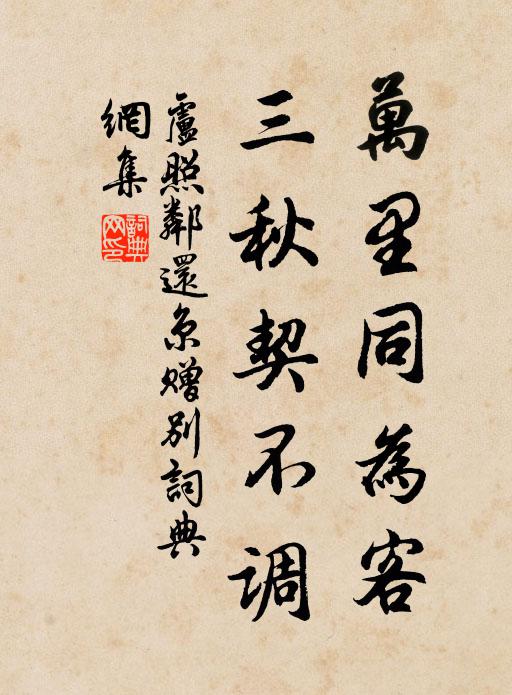 萬里同為客
三秋契不調
盧照鄰還京赠别詞典
網集
詞典
网印